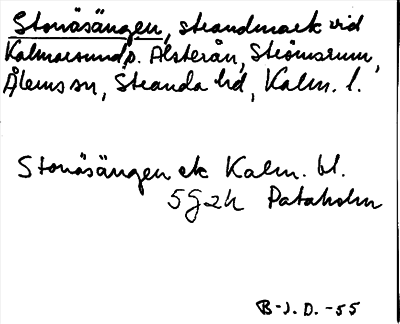 Stonäsängen, strandmark vid
Kalmarsund, s. Alsterån, Strömsrum,
Ålems sn, Stranda hd, Kalm. l.
Stonäsängen ek Kalm. bl.
5G2h Pataholm
B-J.D. -55